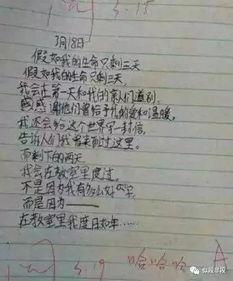 3.18
3月18日
假如我的生命只剩三天
假如我的生命只剩三天
我会在第一天和我的亲人们道别.
感谢他们曾给予我的爱和温暖.
我还会给这个世界写一封信.
告诉人们我曾来过这里.
而剩下的两天
我会在教室里度过.
不是因为我有多么好学
而是因为——
在教室里我度日如年……
3.19
哈哈哈